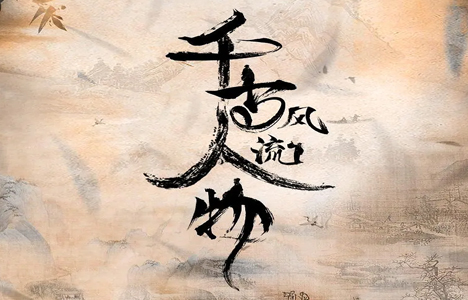 千古风流人物